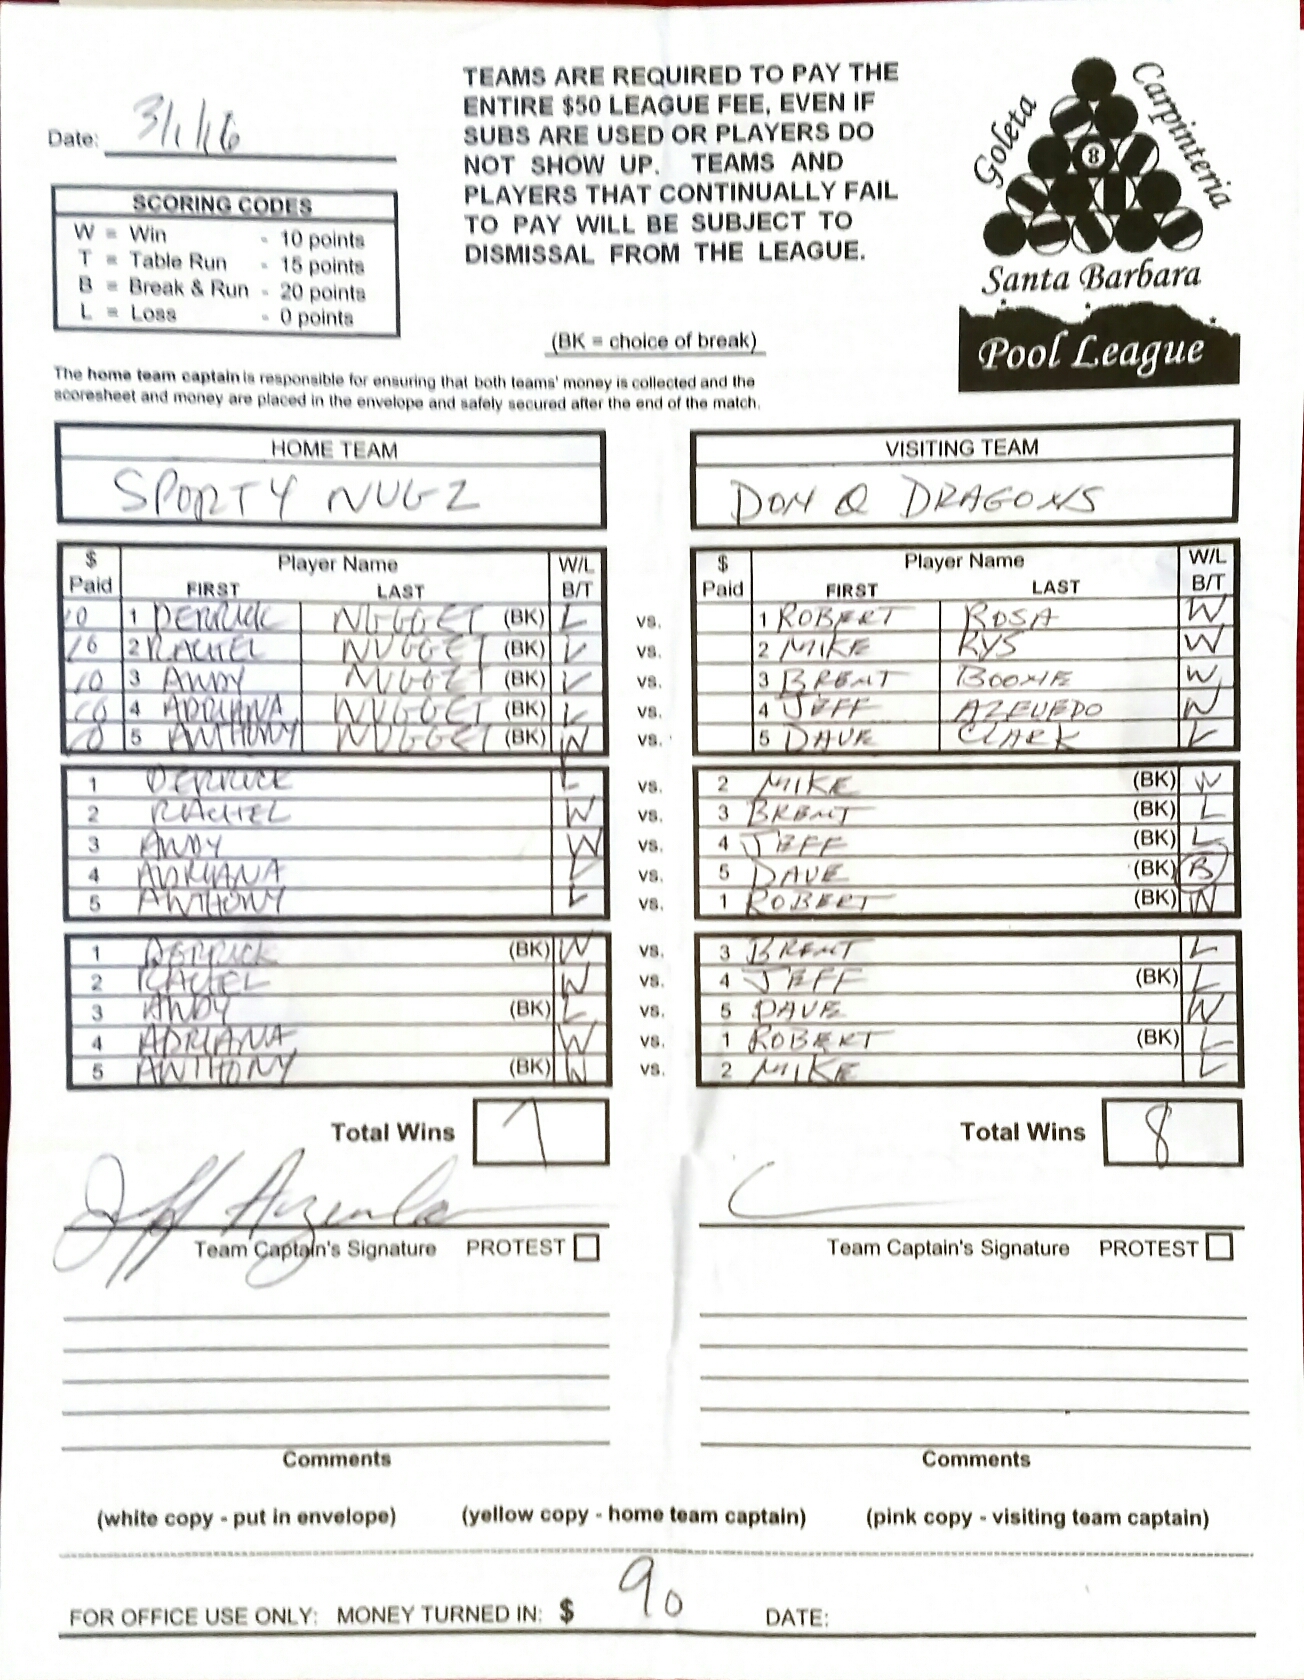 TEAMS ARE REQUIRED TO PAY THE
ENTIRE $50 LEAGUE FEE, EVEN IF
SUBS ARE USED OR PLAYERS DO
NOT SHOW UP. TEAMS AND
PLAYERS THAT CONTINUALLY FAIL
TO PAY WILL BE SUBJECT TO
DISMISSAL FROM THE LEAGUE.
Date: 3/1/16
SCORING CODES
W = Win - 10 points
T = Table Run - 15 points
B = Break & Run - 20 points
L = Loss - 0 points
(BK = choice of break)
Goleta
Carpinteria
8
Santa Barbara
Pool League
The home team captain is responsible for ensuring that both teams' money is collected and the
scoresheet and money are placed in the envelope and safely secured after the end of the match.
HOME TEAM VISITING TEAM
SPORTY NUGZ DON Q DRAGONS
$ Paid Player Name FIRST LAST W/L B/T $ Paid Player Name FIRST LAST W/L B/T
10 1 DERRICK NUGGET (BK) L vs. 1 ROBERT ROSA W
10 2 RACHEL NUGGET (BK) L vs. 2 MIKE KYS W
10 3 ANDY NUGGET (BK) L vs. 3 BRENT BOONE W
10 4 ADRIANA NUGGET (BK) L vs. 4 JEFF AZEVEDO W
10 5 ANTHONY NUGGET (BK) W vs. 5 DAVE CLARK L
1 DERRICK L vs. 2 MIKE (BK) W
2 RACHEL W vs. 3 BRENT (BK) L
3 ANDY W vs. 4 JEFF (BK) L
4 ADRIANA L vs. 5 DAVE (BK) B
5 ANTHONY L vs. 1 ROBERT (BK) W
1 DERRICK (BK) W vs. 3 BRENT L
2 RACHEL W vs. 4 JEFF (BK) L
3 ANDY (BK) L vs. 5 DAVE W
4 ADRIANA W vs. 1 ROBERT (BK) L
5 ANTHONY (BK) W vs. 2 MIKE L
Total Wins 7 Total Wins 8
Jeff Azevedo
Team Captain's Signature PROTEST Team Captain's Signature PROTEST
Comments Comments
(white copy - put in envelope) (yellow copy - home team captain) (pink copy - visiting team captain)
FOR OFFICE USE ONLY: MONEY TURNED IN: $ 90 DATE: